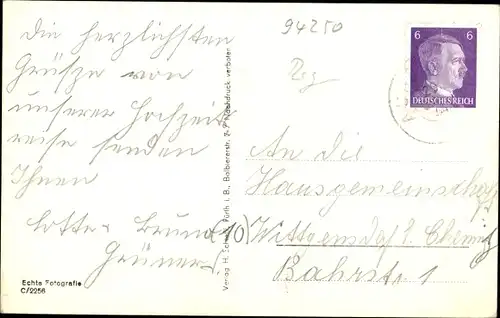 94250
Die herzlichsten
Grüsze von
unserer Hochzeit
reise senden
Ihnen
Lotte + Bruno
Grüner
Echte Fotografie
C/2256
Verlag H. Fürth i. B., Balbiererstr. 7 Nachdruck verboten
6 6
DEUTSCHES REICH
An die
Hausgemeinschaft
(10) Wittgensdorf b. Chemnitz
Bahnstr. 1